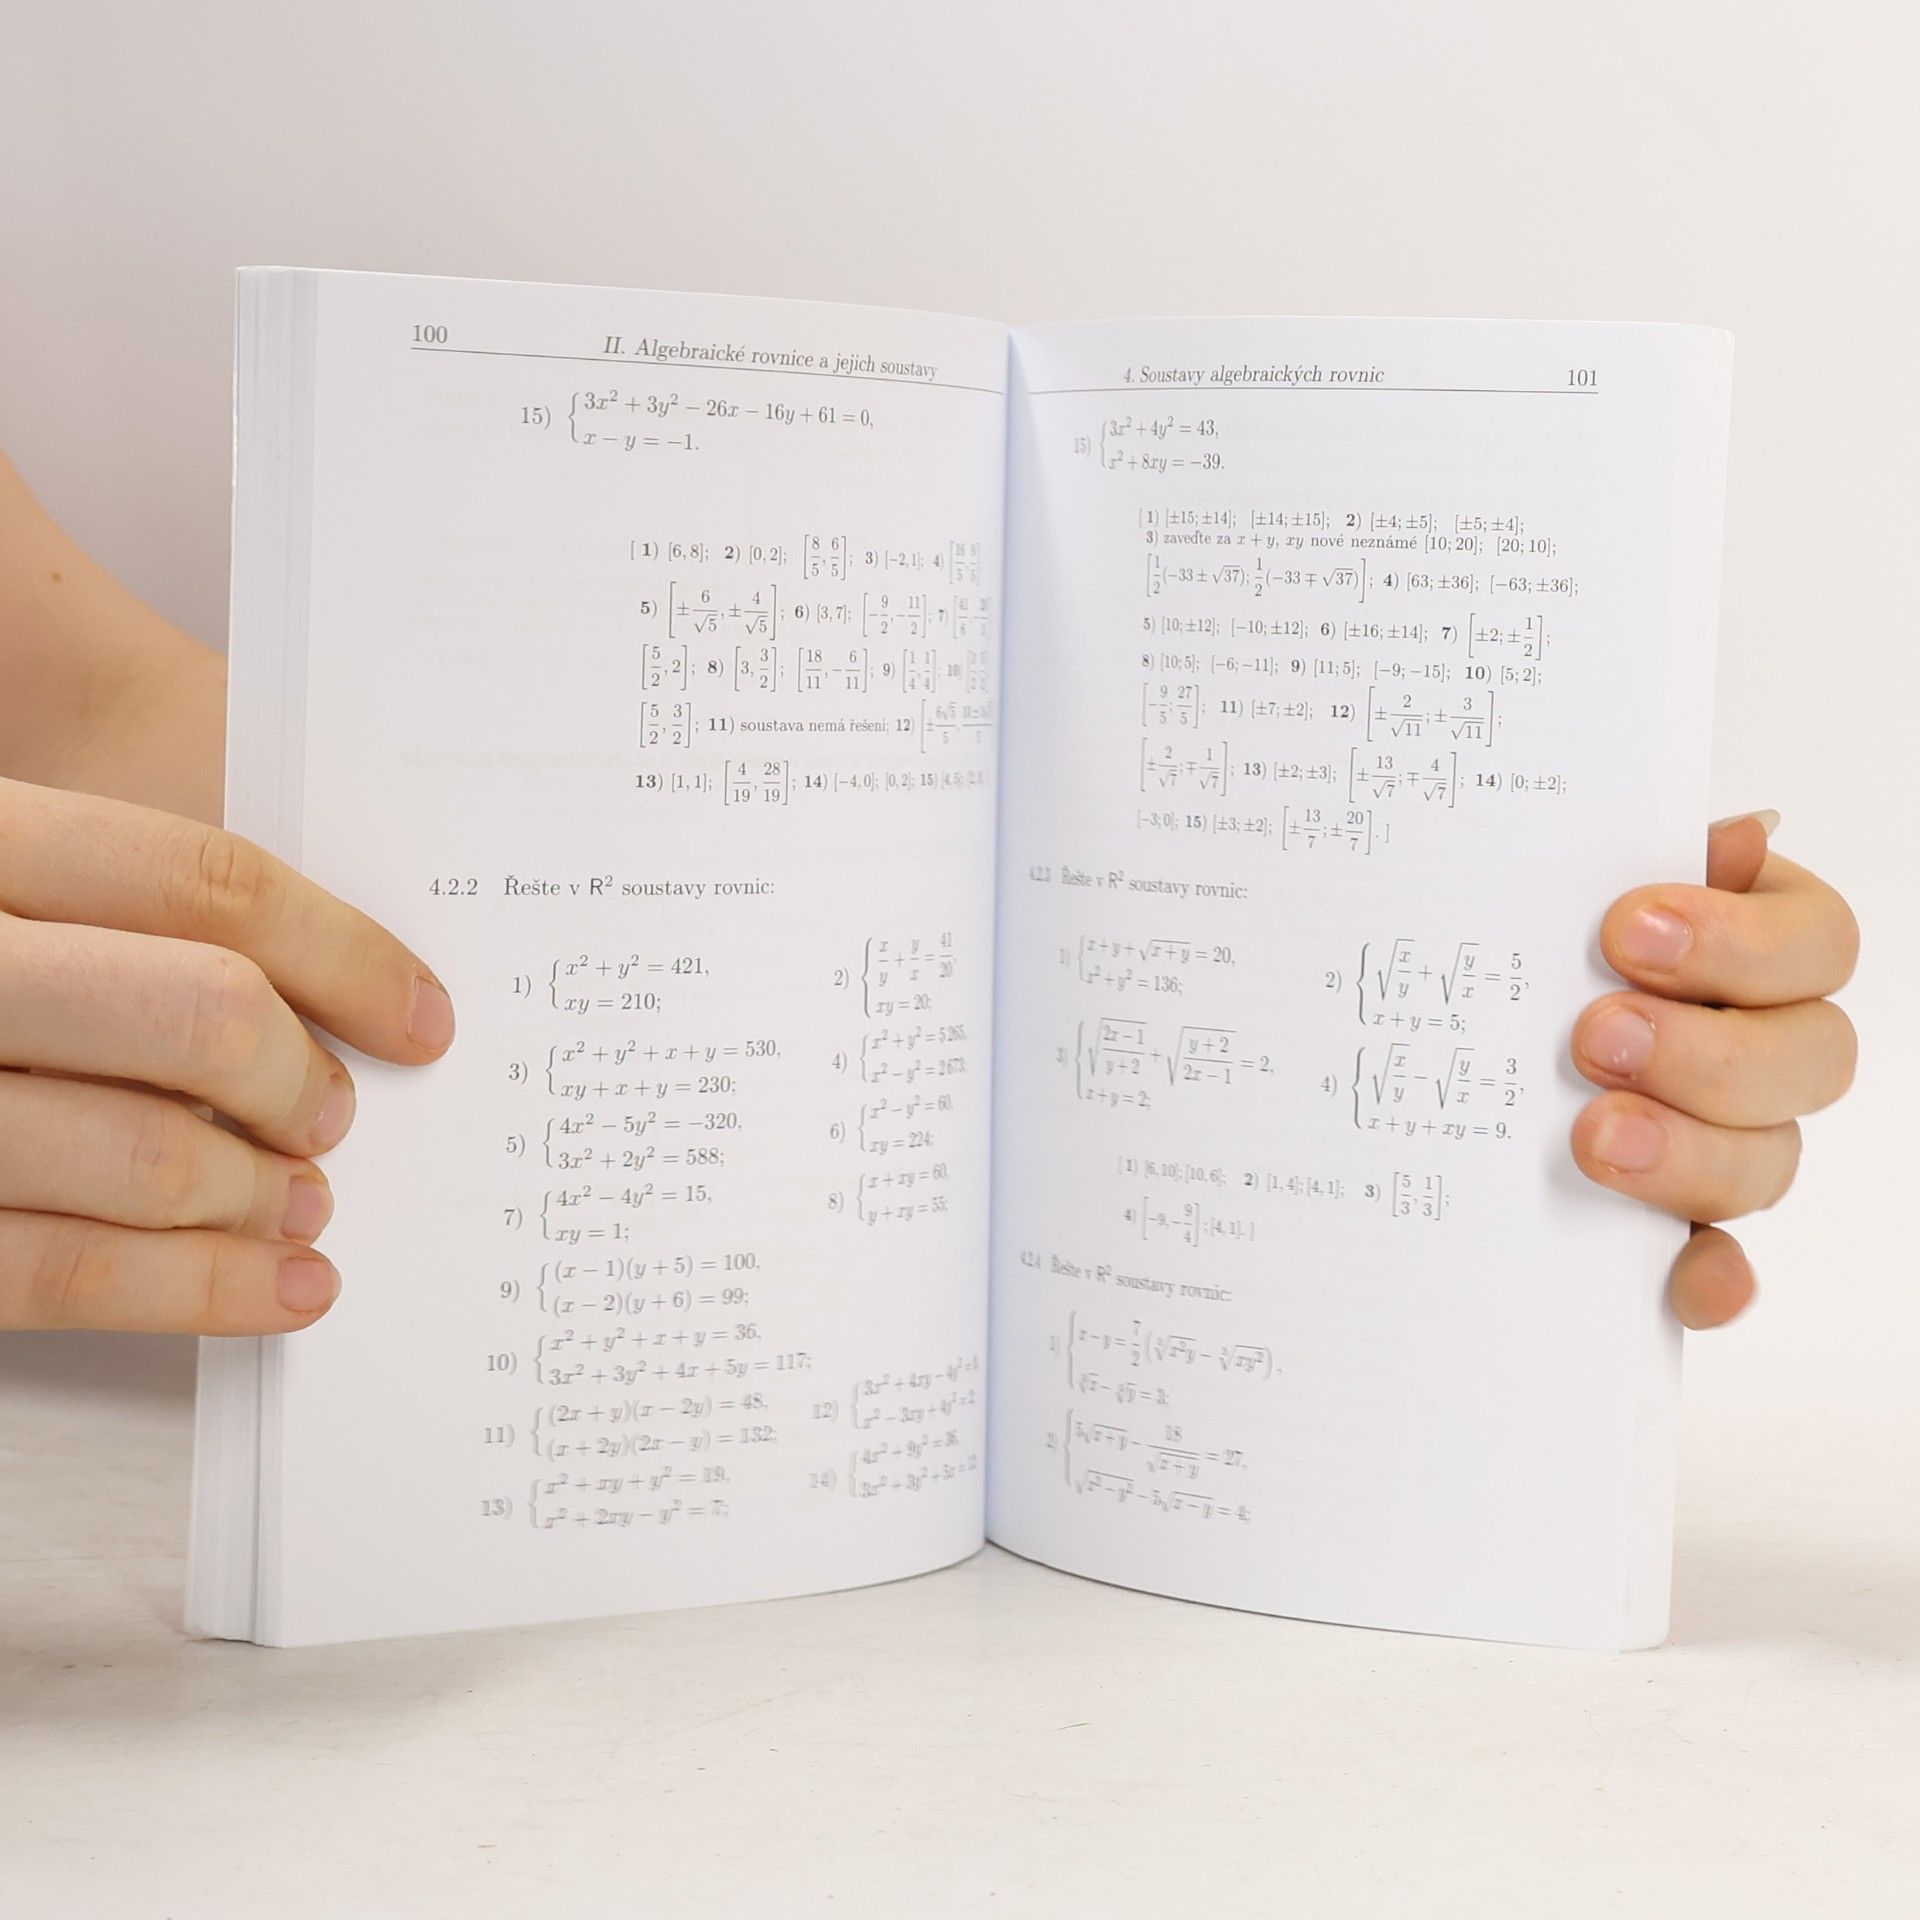 100 II. Algebraické rovnice a jejich soustavy
15) {3x² + 3y² − 26x − 16y + 61 = 0,
x − y = −1.
[ 1) [6, 8]; 2) [0, 2]; [8/5, 6/5]; 3) [−2, 1]; 4)
5) [±6/√5, ±4/√5]; 6) [3, 7]; [−9/2, −11/2]; 7)
[5/2, 2]; 8) [3, 3/2]; [18/11, −6/11]; 9) [1/4, 1/4]; 10)
[5/2, 3/2]; 11) soustava nemá řešení; 12)
13) [1, 1]; [4/19, 28/19]; 14) [−4, 0]; [0, 2]; 15)
4.2.2 Řešte v R² soustavy rovnic:
1) {x² + y² = 421,
xy = 210;
2) {x/y + y/x = 41/20,
xy = 20;
3) {x² + y² + x + y = 530,
xy + x + y = 230;
4) {x² + y² = 5 265,
x² − y² = 2 673;
5) {4x² − 5y² = −320,
3x² + 2y² = 588;
6) {x² − y² = 60,
xy = 224;
7) {4x² − 4y² = 15,
xy = 1;
8) {x + xy = 60,
y + xy = 55;
9) {(x − 1)(y + 5) = 100,
(x − 2)(y + 6) = 99;
10) {x² + y² + x + y = 36,
3x² + 3y² + 4x + 5y = 117;
11) {(2x + y)(x − 2y) = 48,
(x + 2y)(2x − y) = 132;
12) {3x² + 4xy − 4y²
x² − 3xy + 4y² = 2
13) {x² + xy + y² = 19,
x² + 2xy − y² = 7;
14) {4x² + 9y² = 36,
3x² + 3y² + 5x = 12
4. Soustavy algebraických rovnic 101
15) {3x² + 4y² = 43,
x² + 8xy = −39.
[ 1) [±15; ±14]; [±14; ±15]; 2) [±4; ±5]; [±5; ±4];
3) zaveďte za x + y, xy nové neznámé [10; 20]; [20; 10];
[1/2(−33 ± √37); 1/2(−33 ∓ √37)]; 4) [63; ±36]; [−63; ±36];
5) [10; ±12]; [−10; ±12]; 6) [±16; ±14]; 7) [±2; ±1/2];
8) [10; 5]; [−6; −11]; 9) [11; 5]; [−9; −15]; 10) [5; 2];
[−9/5; 27/5]; 11) [±7; ±2]; 12) [±2/√11; ±3/√11];
[±2/√7; ∓1/√7]; 13) [±2; ±3]; [±13/√7; ∓4/√7]; 14) [0; ±2];
[−3; 0]; 15) [±3; ±2]; [±13/7; ±20/7]. ]
4.2.3 Řešte v R² soustavy rovnic:
1) {x + y + √(x + y) = 20,
x² + y² = 136;
2) {√(x/y) + √(y/x) = 5/2,
x + y = 5;
3) {√((2x − 1)/(y + 2)) + √((y + 2)/(2x − 1)) = 2,
x + y = 2;
4) {√(x/y) − √(y/x) = 3/2,
x + y + xy = 9.
[ 1) [6, 10]; [10, 6]; 2) [1, 4]; [4, 1]; 3) [5/3, 1/3];
4) [−9, −9/4]; [4, 1]. ]
4.2.4 Řešte v R² soustavy rovnic:
1) {x − y = 7/2(∛(x²y) − ∛(xy²)),
∛x − ∛y = 3;
2) {5√(x + y) − 18/√(x + y) = 27,
√(x² − y²) − 5√(x − y) = 4;